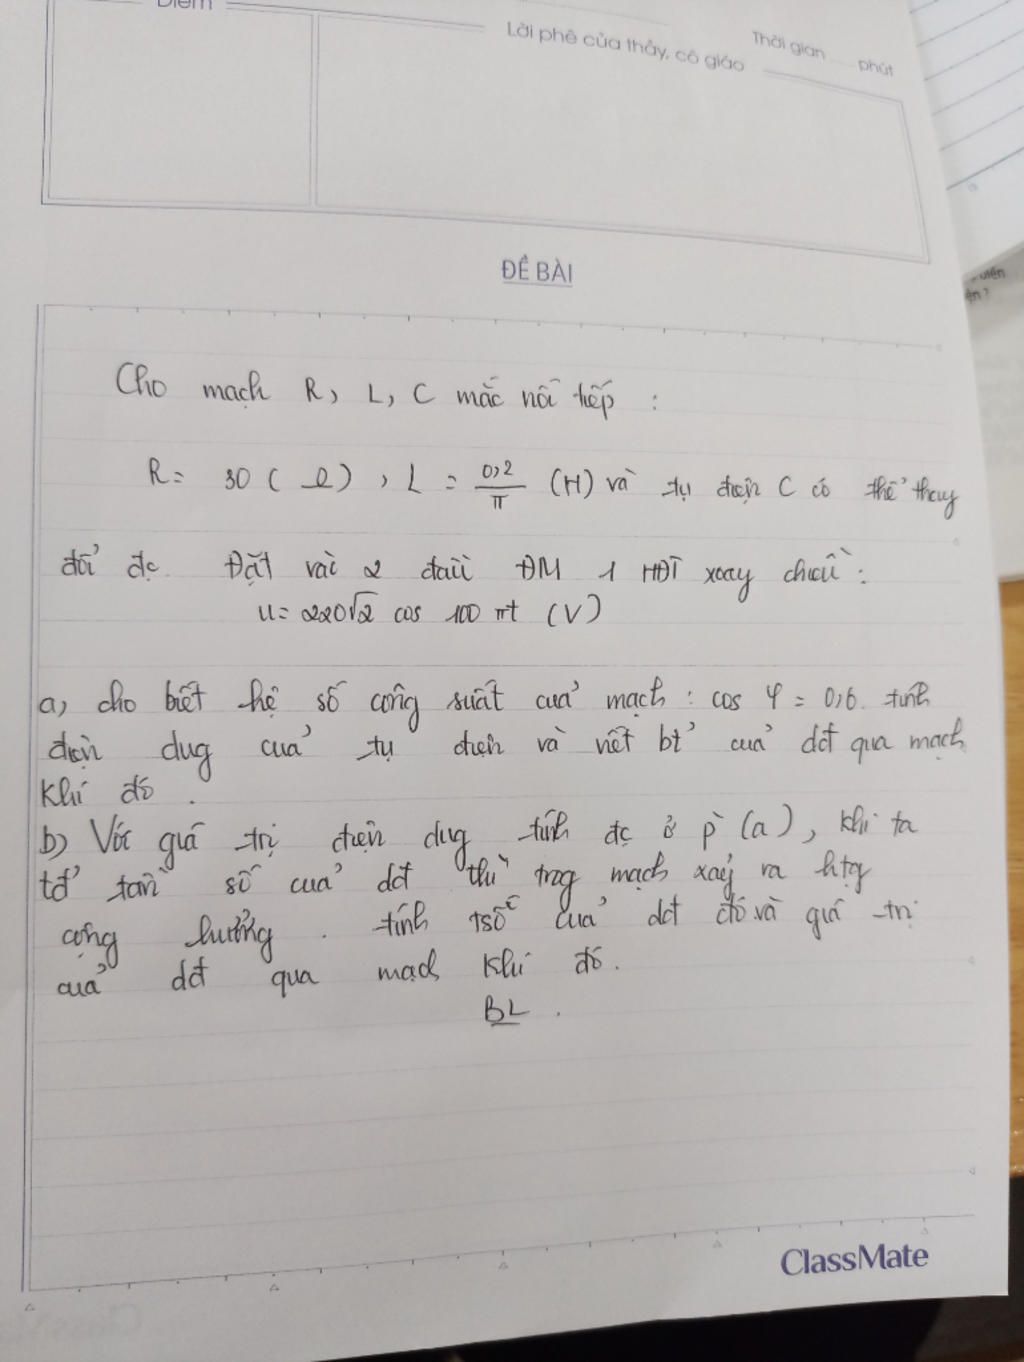 Điểm
Thời gian ...... phút
Lời phê của thầy, cô giáo
ĐỀ BÀI
Cho mạch R, L, C mắc nối tiếp :
R = 30 ( Ω ) , L = 0,2/π (H) và tụ điện C có thể thay
đổi đc. Đặt vài 2 đầu ĐM 1 HĐT xoay chiều :
u = 220√2 cos 100 πt (V)
a, cho biết hệ số công suất của mạch : cos φ = 0,6. tính
điện dug của tụ điện và viết bt của dđ qua mạch
khi đó .
b) Vớc giá trị điện dug tính đc ở p (a), khi ta
tđ tần số của dđ thì trog mạch xảy ra htg
cộng hưởng . tính tsố của dđ đó và giá trị
của dđ qua mạch khi đó.
BL .
ClassMate